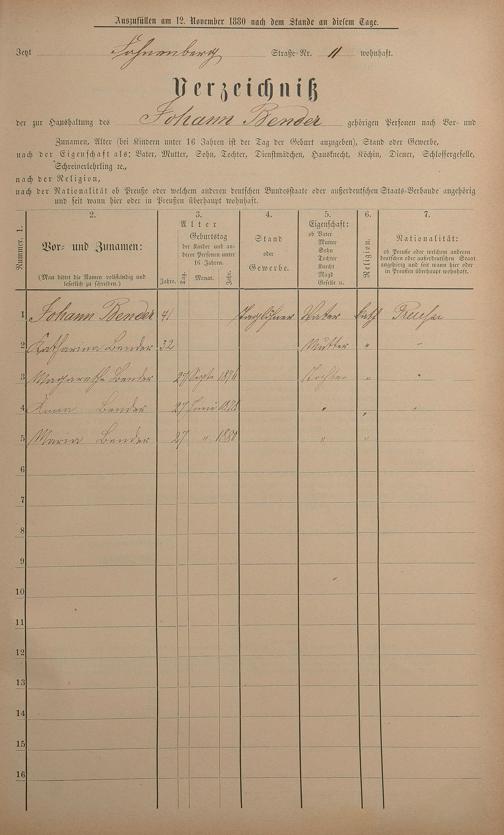 Auszufüllen am 12. November 1880 nach dem Stande an diesem Tage.
Jetzt Straße-Nr. 11 wohnhaft.
Verzeichniß
der zur Haushaltung des Johann Bender gehörigen Personen nach Vor- und
Zunamen, Alter (bei Kindern unter 16 Jahren ist der Tag der Geburt anzugeben), Stand oder Gewerbe,
nach der Eigenschaft als: Vater, Mutter, Sohn, Tochter, Dienstmädchen, Hausknecht, Köchin, Diener, Schlossergeselle,
Schreinerlehrling ꝛc.,
nach der Religion,
nach der Nationalität ob Preuße oder welchem anderen deutschen Bundesstaate oder außerdeutschen Staats-Verbande angehörig
und seit wann hier oder in Preußen überhaupt wohnhaft.
Nummer. 1.
2.
Vor- und Zunamen:
(Man bittet die Namen vollständig und
leserlich zu schreiben.)
3.
Alter
Geburtstag
der Kinder und an-
deren Personen unter
16 Jahren.
Jahre. Tag. Monat. Jahr.
4.
Stand
oder
Gewerbe.
5.
Eigenschaft:
ob Vater
Mutter
Sohn
Tochter
Knecht
Magd
Geselle u.
6.
Religion.
7.
Nationalität:
ob Preuße oder welchem anderen
deutschen oder außerdeutschen Staat
angehörig und seit wann hier oder
in Preußen überhaupt wohnhaft.
1 Johann Bender 41 Taglöhner Vater kath Preuße
2 Katharina Bender 32 Mutter " "
3 Bender 27 Septe Tochter " "
4 Anna Bender 27 Juni 1878 " " "
5 Maria Bender 27 " 1880 " "
6
7
8
9
10
11
12
13
14
15
16